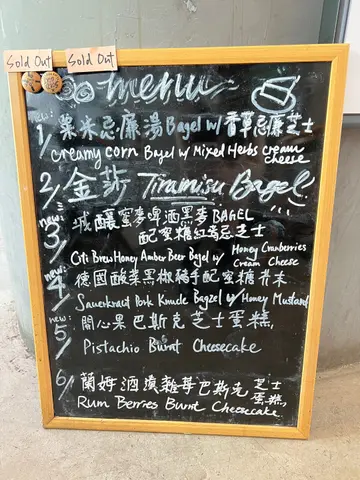 Sold Out
Sold Out
menu
new:
1/ 粟米忌廉湯 Bagel w/ 香草忌廉芝士
creamy corn Bagel w/ Mixed Herbs cream cheese
2/ 金莎 Tiramisu Bagel
new:
3/ 城釀蜜麥啤酒黑麥 BAGEL
配蜜糖紅莓忌芝士
Citi Brew Honey Amber Beer Bagel w/ Honey Cranberries Cream Cheese
new:
4/ 德國酸菜黑椒豬手配蜜糖芥末
Sauerkraut Pork Knucle Bagel w/ Honey Mustard
new:
5/ 開心果巴斯克芝士蛋糕,
Pistachio Burnt Cheesecake
6/ 蘭姆酒漬雜莓巴斯克芝士蛋糕,
Rum Berries Burnt Cheesecake